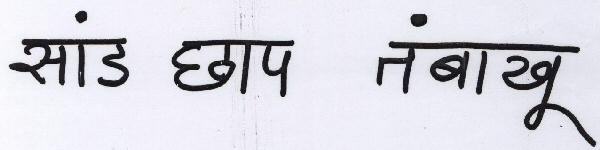 सांड छाप तंबाखू